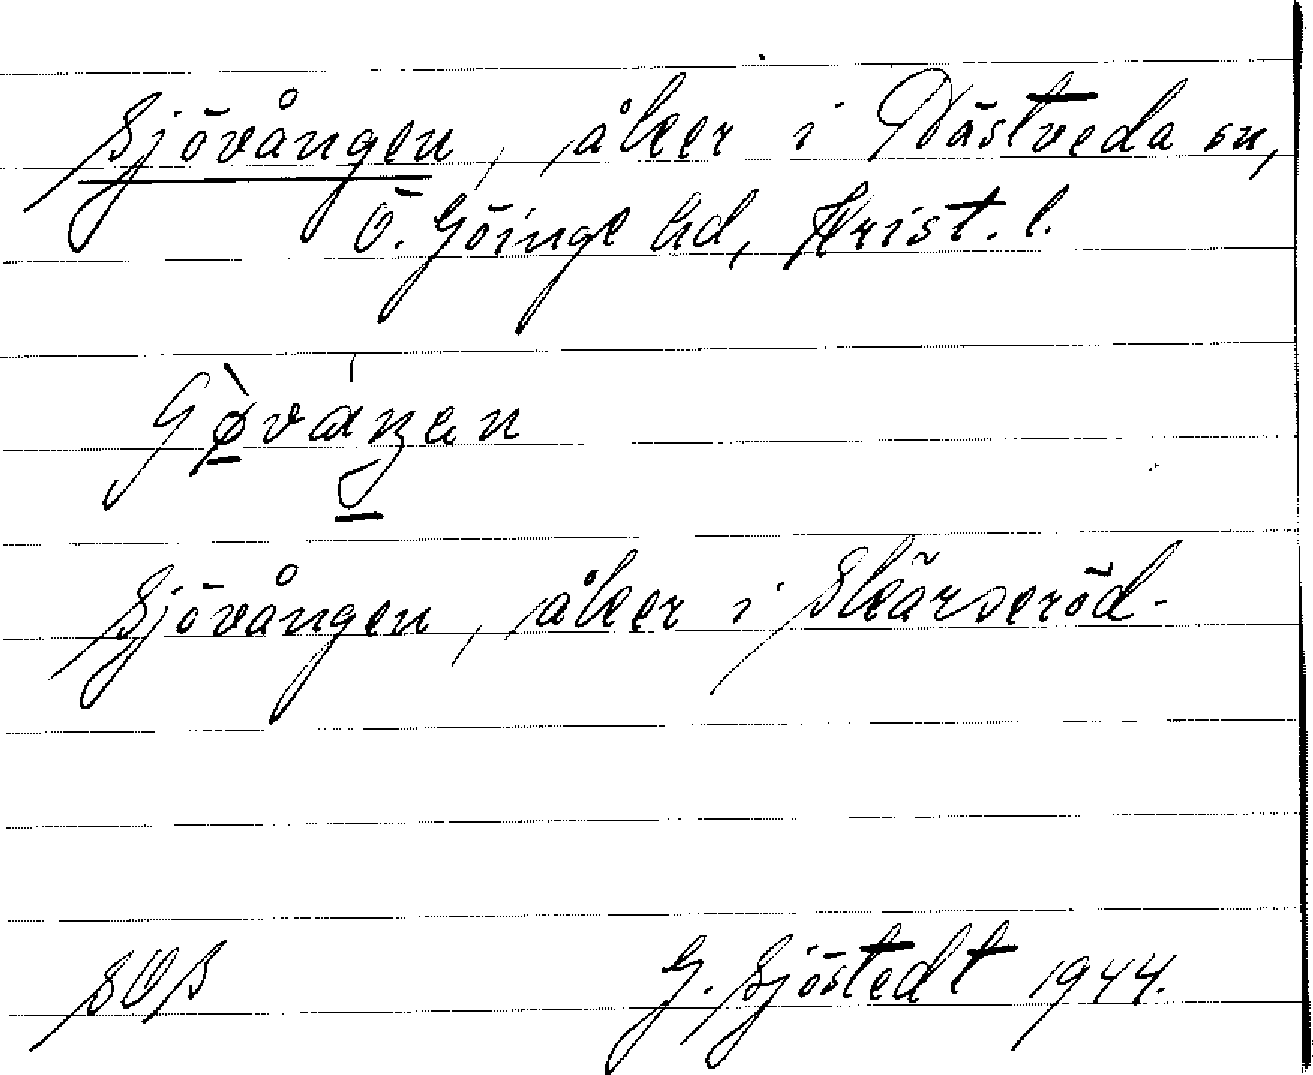 Sjövången, åker i Västveda sn,
Ö. Göinge hd, Krist. l.
Sjövången, åker i Skärseröd.
SOS G. Sjöstedt 1944.